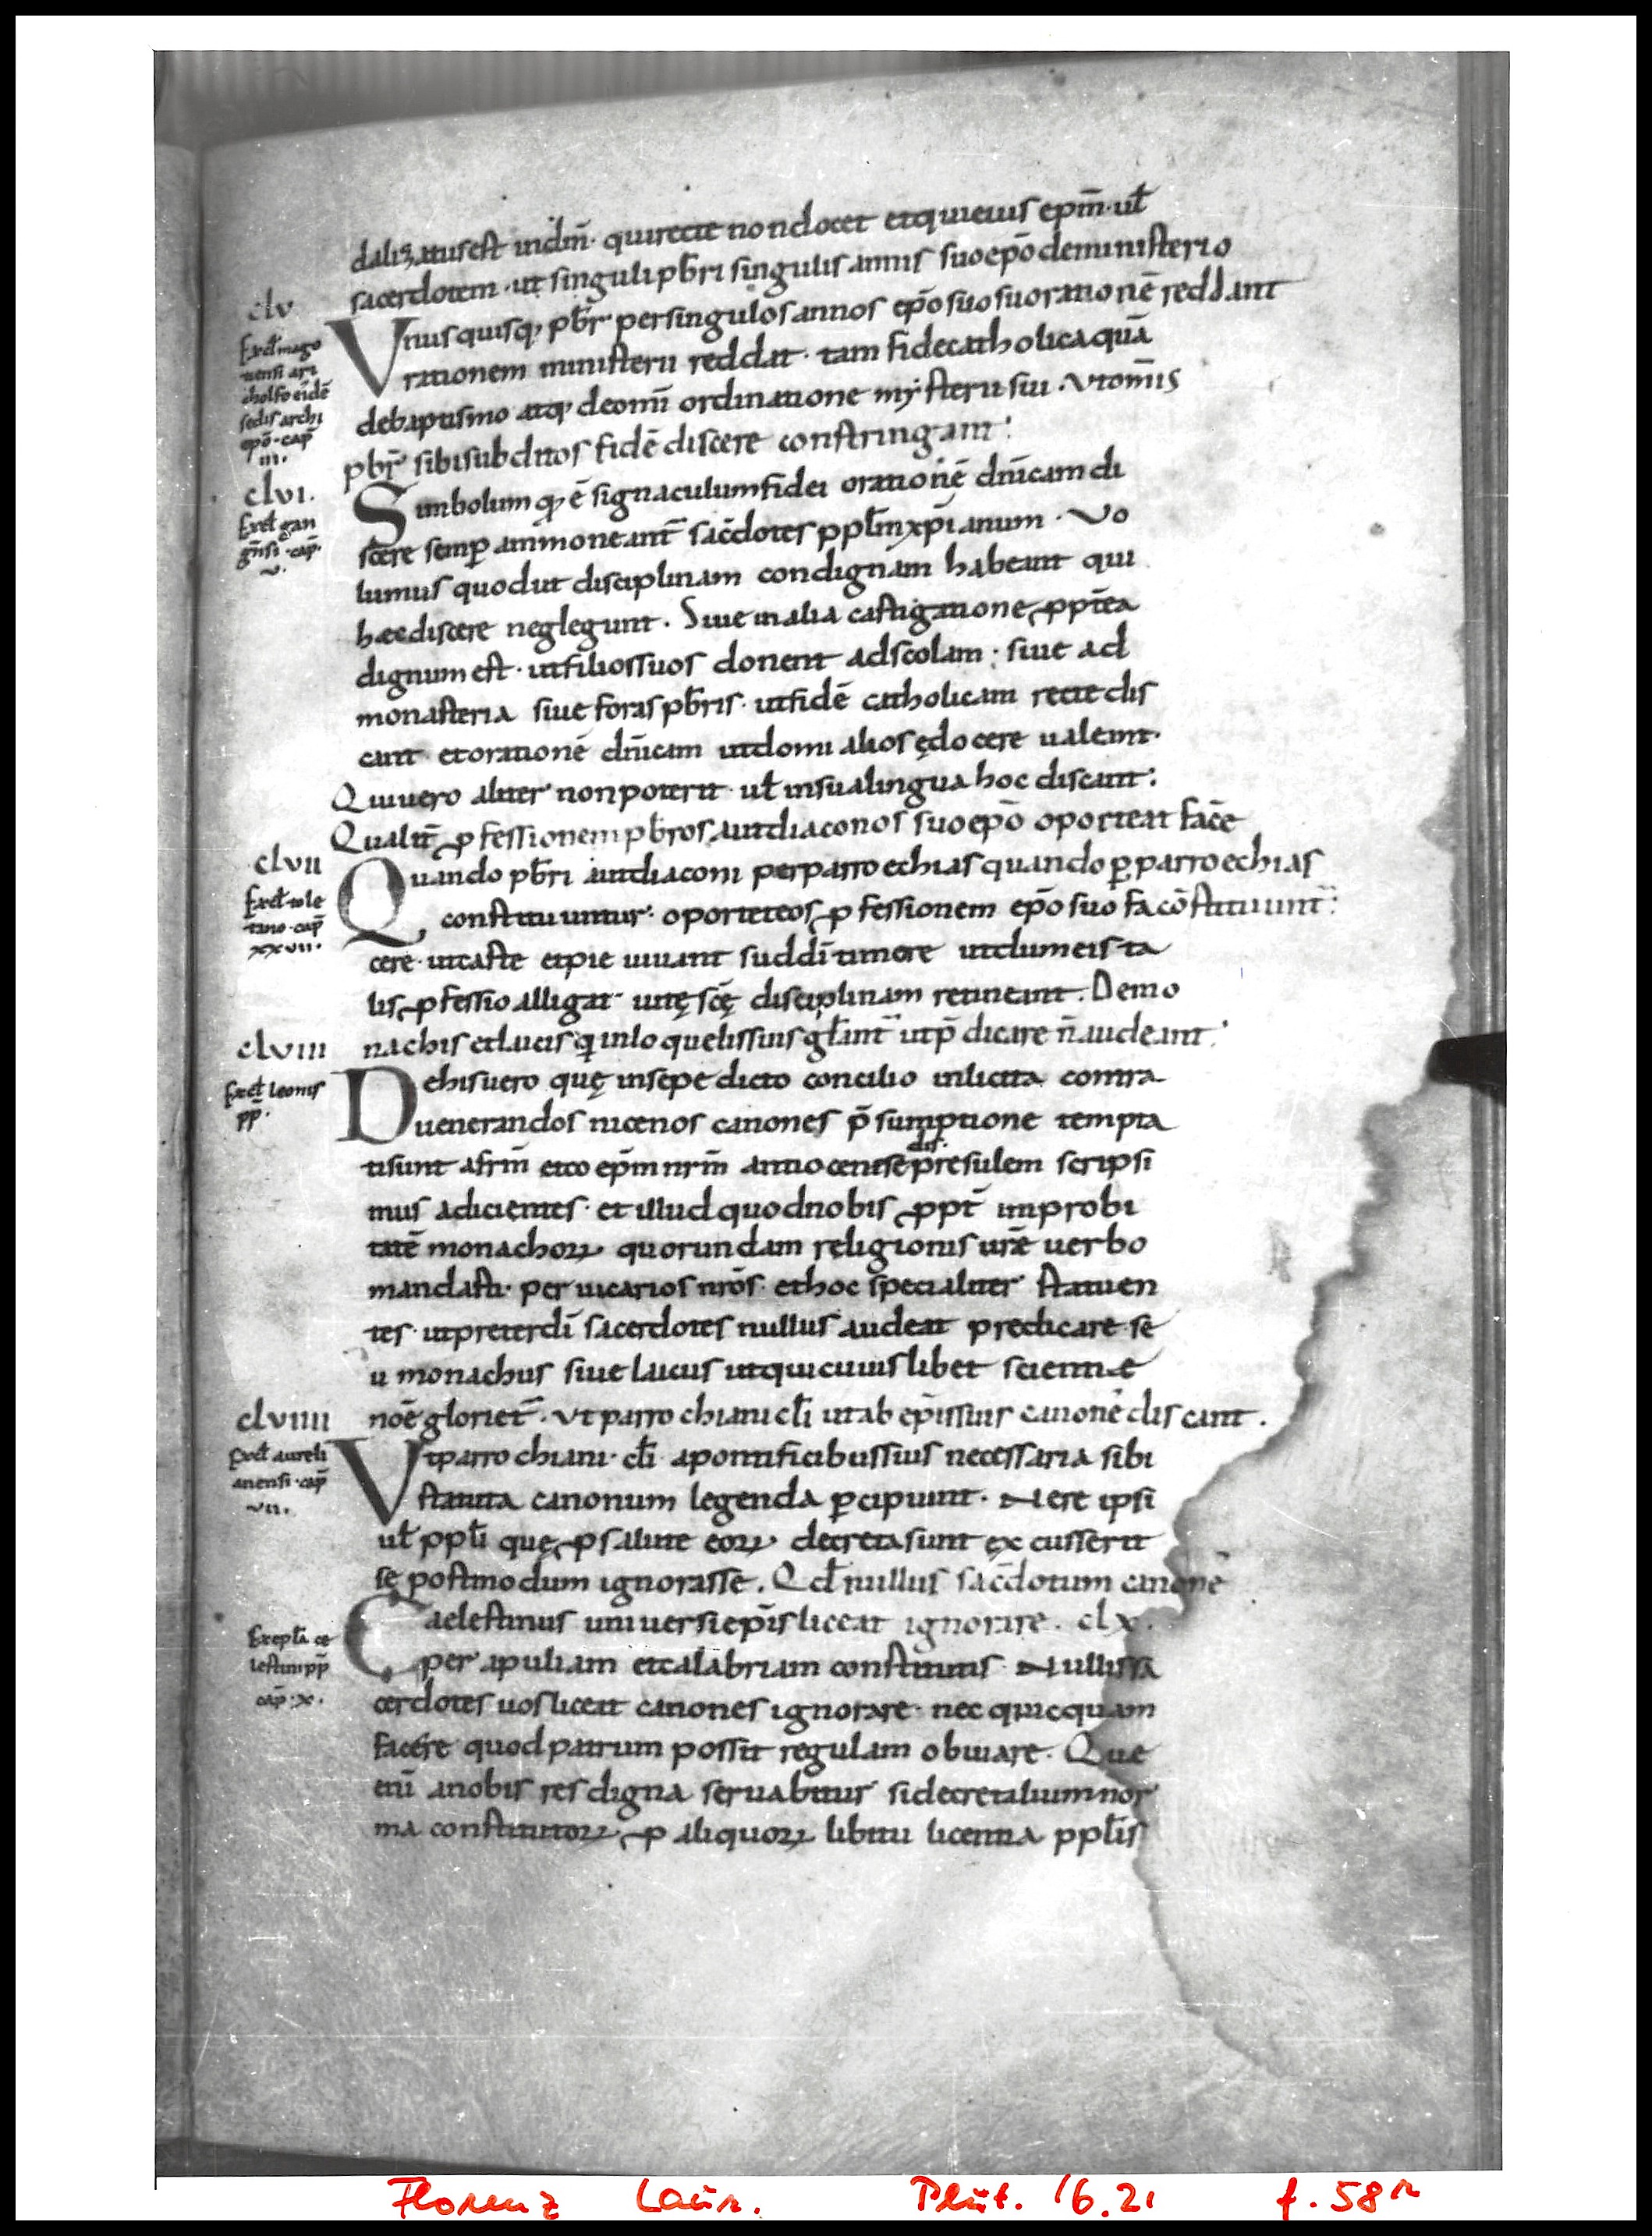 daliȝatus est in dm̄· qui recte non docet et qui eius ep̄m· ul̄
sacerdotem· ut singuli pb̄ri singulis annis suo ep̄o de ministerio
clv
Vnusquisq; pb̄r per singulos annos ep̄o suo suo rationē reddant
Ex c̄ mago
nensi ari
cholfo eidē
sedis archi
ep̄o· cap̄
III.
rationem ministerii reddat· tam fide catholica quā
de baptismo atq; de om̄i ordinatione mysterii sui· Vt om̄is
pb̄r sibi subditos fidē discere constringant:
clvi.
Simbolum q; ē signaculum fidei orationē dn̄icam di
Ex c̄ gan
gn̄si· cap̄
v.
scere semp ammoneant̄ sac̄dotes ppl̄m xp̄ianum· Vo
lumus quod ut disciplinam condignam habeant qui
haec discere neglegunt. Siue in alia castigatione, ppt̄ea
dignum est· ut filios suos donent ad scolam; siue ad
monasteria siue foras pb̄ris· ut fidē catholicam recte dis
cant· et orationē dn̄icam ut domi alios ędocere ualeant·
Qui uero aliter non poterit· ul̄ in sua lingua hoc discant:
Qualit̄ pfessionem pb̄ros aut diaconos suo ep̄o oporteat fac̄e
clvii
Quando pb̄ri aut diaconi per parroechias quando p parroechias
Ex c̄ tole
tano· cap̄
xxvii.
constituuntur· oportet eos pfessionem ep̄o suo fa cōstituunt̄:
cere· ut caste et pie uiuant sud dī timore ut dum eis ta
lis pfessio alligat· uitę scę̄ disciplinam retineant. De mo
clviii
nachis et laicis q in loquelis suis gl̄iant̄ ut p̄dicare n̄ audeant:
Ex c̄ leonis
pp̄.
De his uero quę in sepe dicto concilio inlicita contra
uenerandos nicenos canones p̄sumptione tempta
dis·
ti sunt a frm̄ et co ep̄m nrm̄ antiocense presulem scripsi
mus adicientes· et illud quod nobis ppt̄ improbi
tatē monachoꝝ quorundam religionis urāe uerbo
mandasti· per uicarios nrōs· et hoc specialiter statuen
tes· ut preter dī sacerdotes nullus audeat predicare· se
u monachus siue laicus ut qui cuius libet scientie
clviiii
noē gloriet̄· Vt parrochiani cl̄i ut ab ep̄is suis canonē discant.
Ex c̄ aureli
anensi· cap̄
vii.
Vt parrochiani· cl̄i a pontificibus suis necessaria sibi
statuta canonum legenda pcipiant· Ne re ipsi
ul̄ ppl̄i quę p salute eoꝝ decreta sunt excusserit
se postmodum ignorasse. Qd̄ nullus sac̄dotum canonē
Caelestinus uniuersi ep̄is liceat ignorare. clx.
Ex epl̄a ce
lestini pp̄
cap̄· x.
per apuliam et calabriam constitutis· Nulli sa
cerdotes uos liceat canones ignorare· nec quicquam
facere quod patrum possit regulam obuiare· Que
enī a nobis res digna seruabitur si decretalium nor
ma constitutoꝝ p aliquoꝝ libitu licentia ppl̄is
Florenz Laur. Plut. 16.21 f. 58r